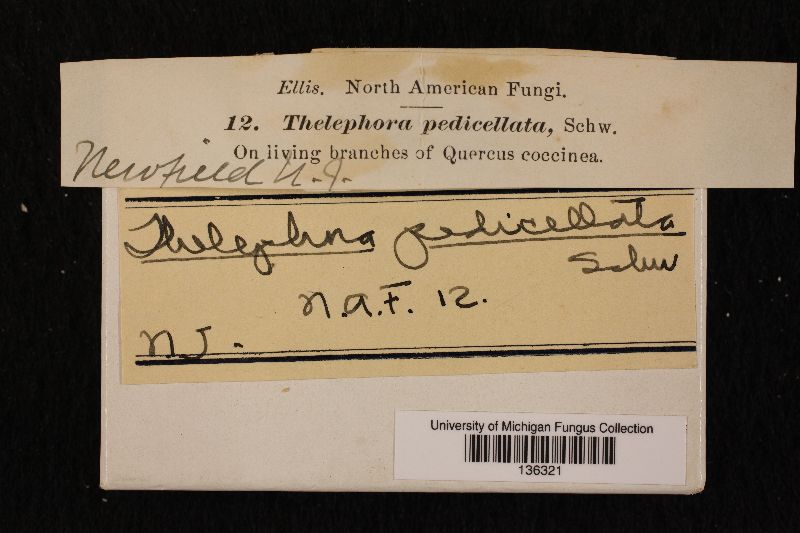 Ellis. North American Fungi.
12. Thelephora pedicellata, Schw.
On living branches of Quercus coccinea.
Newfield N.J.
Thelephora pedicellata
Schw
N.A.F. 12.
NJ.
University of Michigan Fungus Collection
136321